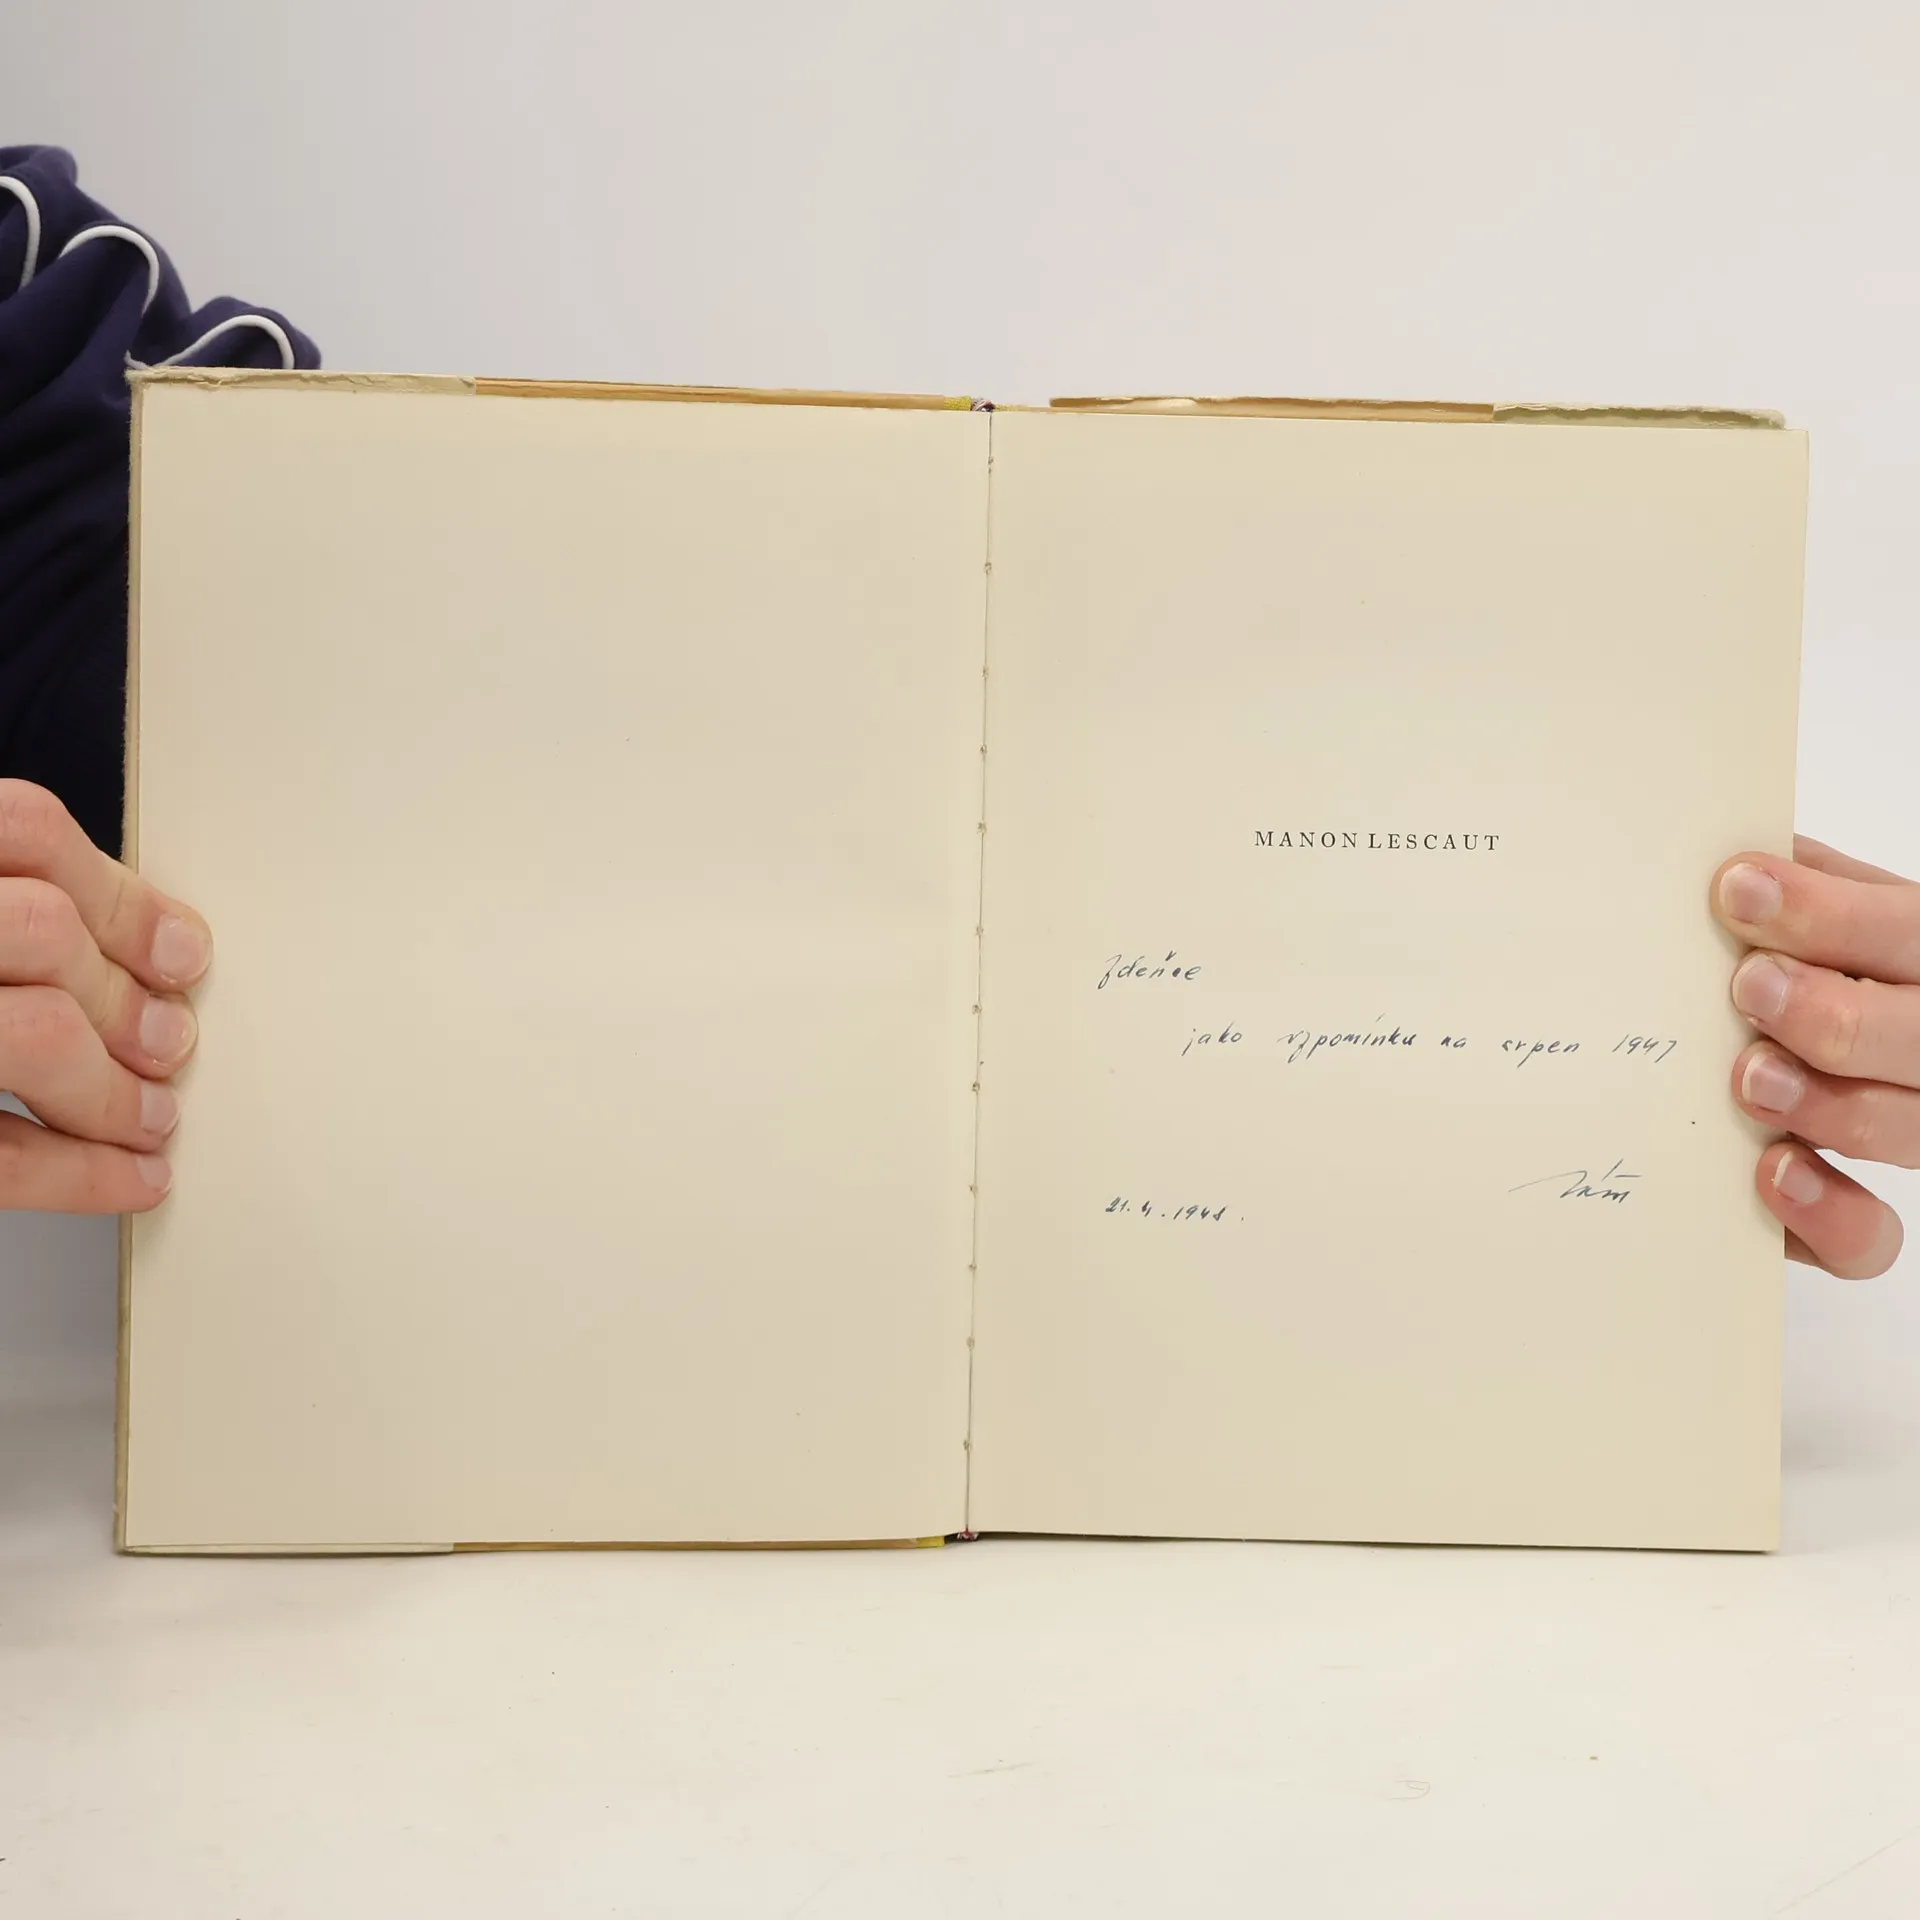 MANON LESCAUT
Zdeňce
jako vzpomínku na srpen 1947
21. 4. 1948.